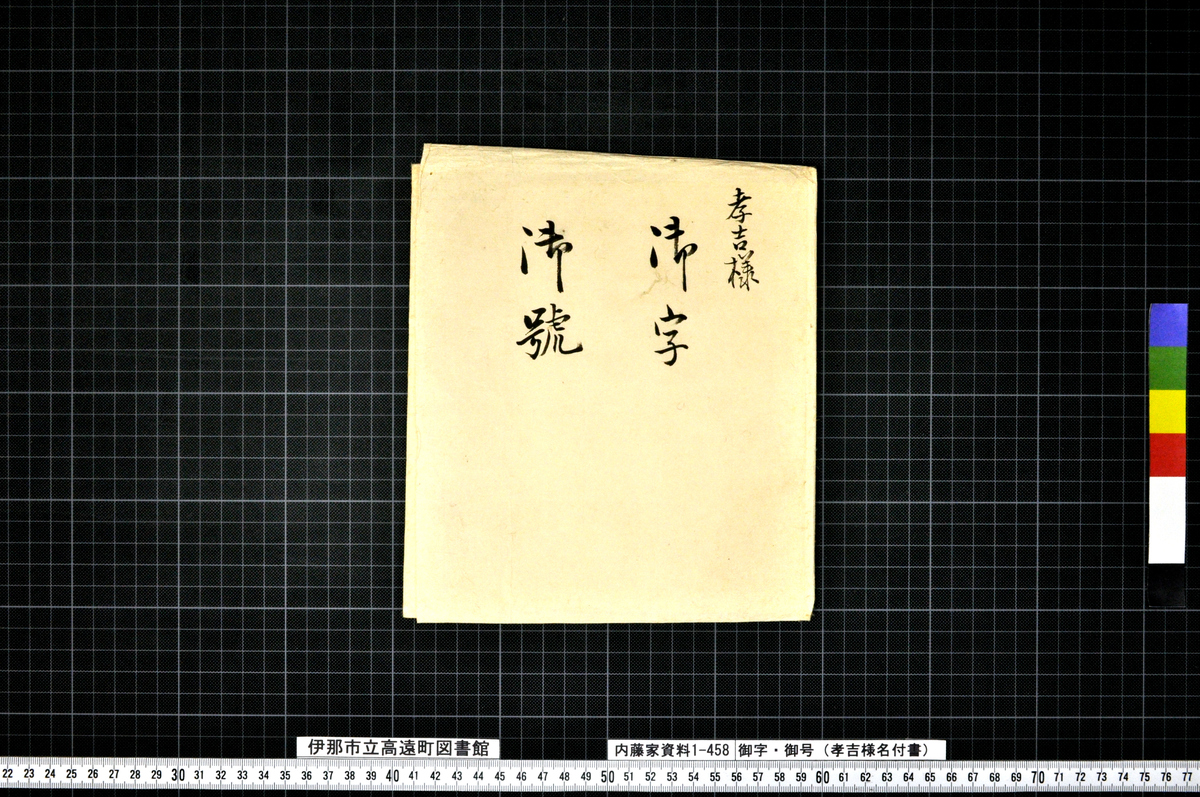 孝吉様
御字
御號
伊那市立高遠町図書館
内藤家資料1-458 御字・御号(孝吉様名付書)
22 23 24 25 26 27 28 29 30 31 32 33 34 35 36 37 38 39 40 41 42 43 44 45 46 47 48 49 50 51 52 53 54 55 56 57 58 59 60 61 62 63 64 65 66 67 68 69 70 71 72 73 74 75 76 77